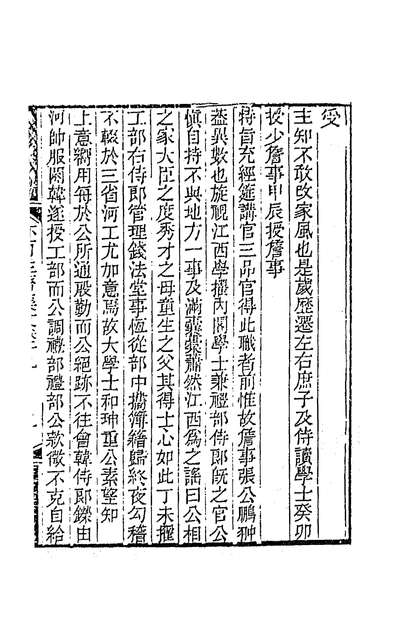 受
主知不敢改家風也是歲歷遷左右庶子及侍讀學士癸卯
授少詹事甲辰授詹事
特旨充經筵講官三品官得此職者前惟故詹事張公鵬翀
蓋異數也旋視江西學擢內閣學士兼禮部侍郎旣之官公
愼自持不與地方一事及滿囊橐蕭然江西爲之謠曰公相
之家大臣之度秀才之母童生之父其得士心如此丁未擢
工部右侍郎管理錢法堂事恆從部中攜濟繪歸終夜勾稽
不輟於三省河工尤加意焉故大學士和珅重公素望知
上意嚮用每於公所通殷勤而公絕跡不往會韓侍郎鑅由
河帥服闋韓逐授工部而公調禮部禮部公欵微不克自給